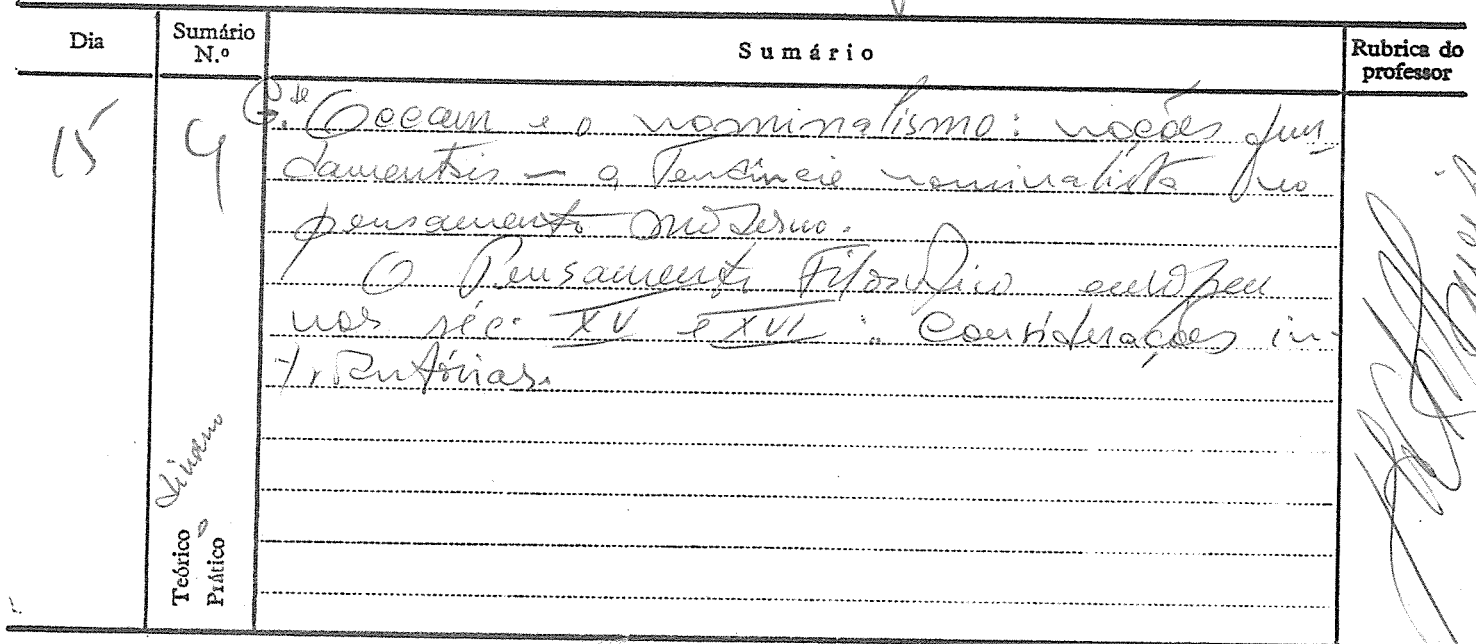 Dia
Sumário N.º
Sumário
Rubrica do professor
15
G. de Occam e o nominalismo: noções fun
damentais — a tendência nominalista no
pensamento moderno.
O Pensamento Filosófico europeu
nos séc. XV e XVI: Considerações in-
trodutórias.
Teórico
Prático